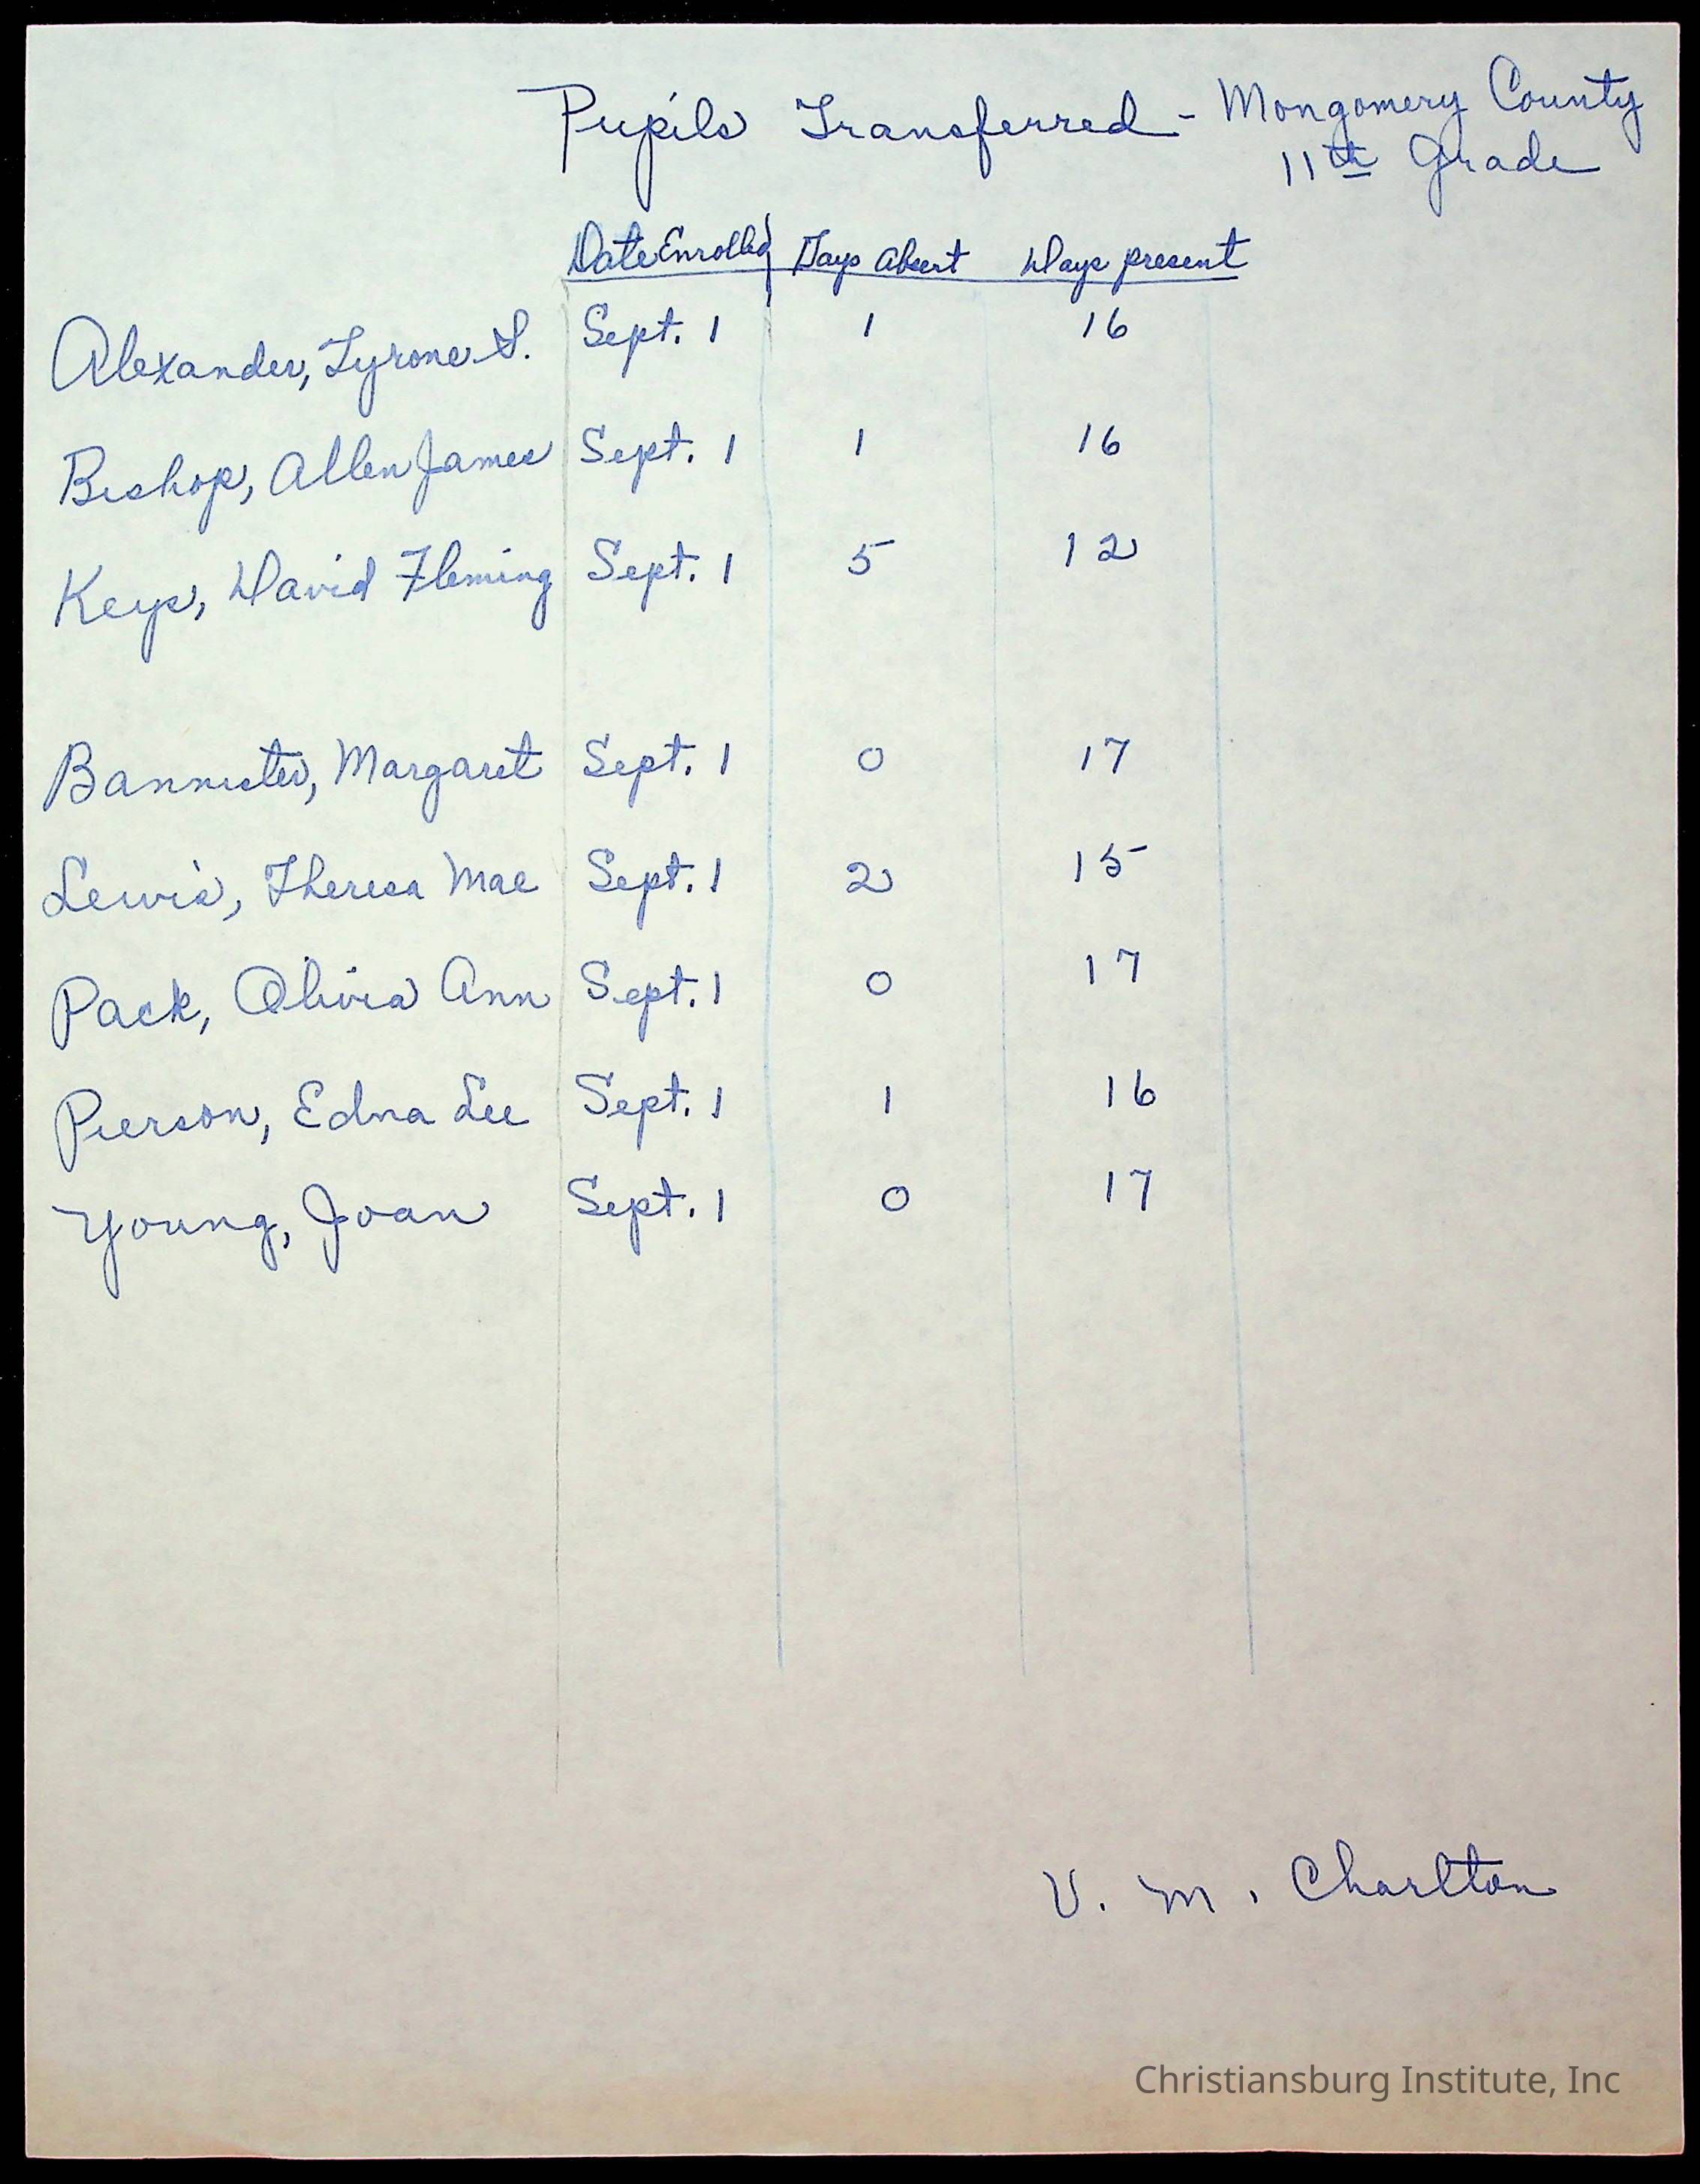 Pupils Transferred - Mongomery County
11th Grade
Date Enrolled Days Absent Days present
Alexander, Tyrone S. Sept. 1 1 16
Bishop, Allen James Sept. 1 1 16
Keys, David Fleming Sept. 1 5 12
Bannister, Margaret Sept. 1 0 17
Lewis, Theresa Mae Sept. 1 2 15
Pack, Olivia Ann Sept. 1 0 17
Pierson, Edna Lee Sept. 1 1 16
Young, Joan Sept. 1 0 17
V. M. Charlton
Christiansburg Institute, Inc